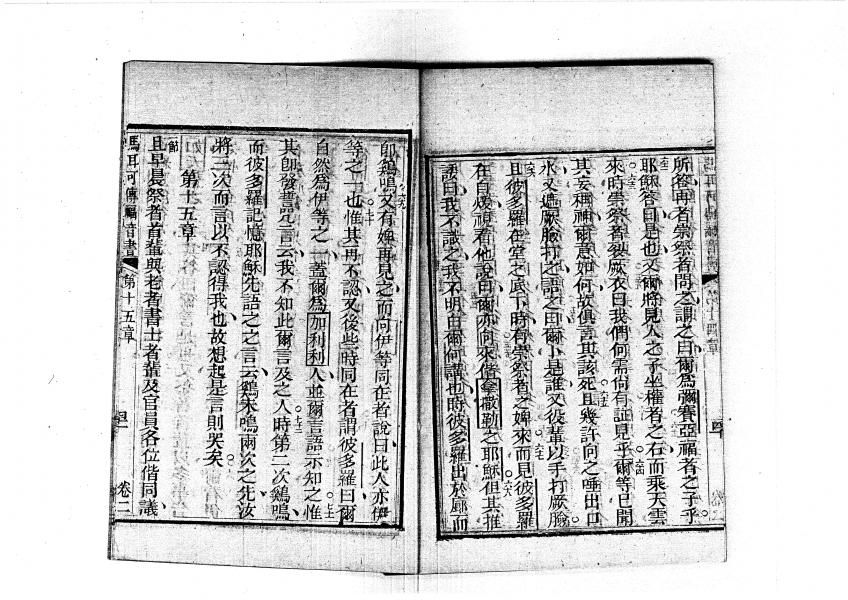 所答再者崇祭者問之謂之曰爾爲彌賽亞福者之子乎
耶穌答曰是也又爾將見人之子坐權者之右而乘天雲
來時崇祭者裂厥衣曰我們何需尚有証見乎爾等已聞
其妄稱神爾意如何故俱言其該死且幾許向之唾出口
水又遮厥臉打之語之曰爾卜是誰又彼輩以手打厥臉
且彼多羅在堂之底下時有崇祭者之婢來而見彼多羅
在自煖視着他說曰爾亦向來偕拿撒勒之耶穌但其推
諉曰我不識之我不明白爾何講也時彼多羅出於廊而
即鷄鳴又有婢再見之而向伊等同在者說曰此人亦伊
等之一也惟其再不認又後些時同在者謂彼多羅曰爾
自然爲伊等之一蓋爾爲加利利人並爾言語示知之惟
其即發誓咒言云我不知此爾言及之人時第二次鷄鳴
而彼多羅記憶耶穌先語之之言云鷄未鳴兩次之先汝
將三次而言以不認得我也故想起是言則哭矣
第十五章
一節
且早晨祭者首輩與老者書士者輩及官員各位偕同議
馬耳可傳福音書
第十五章
卷二